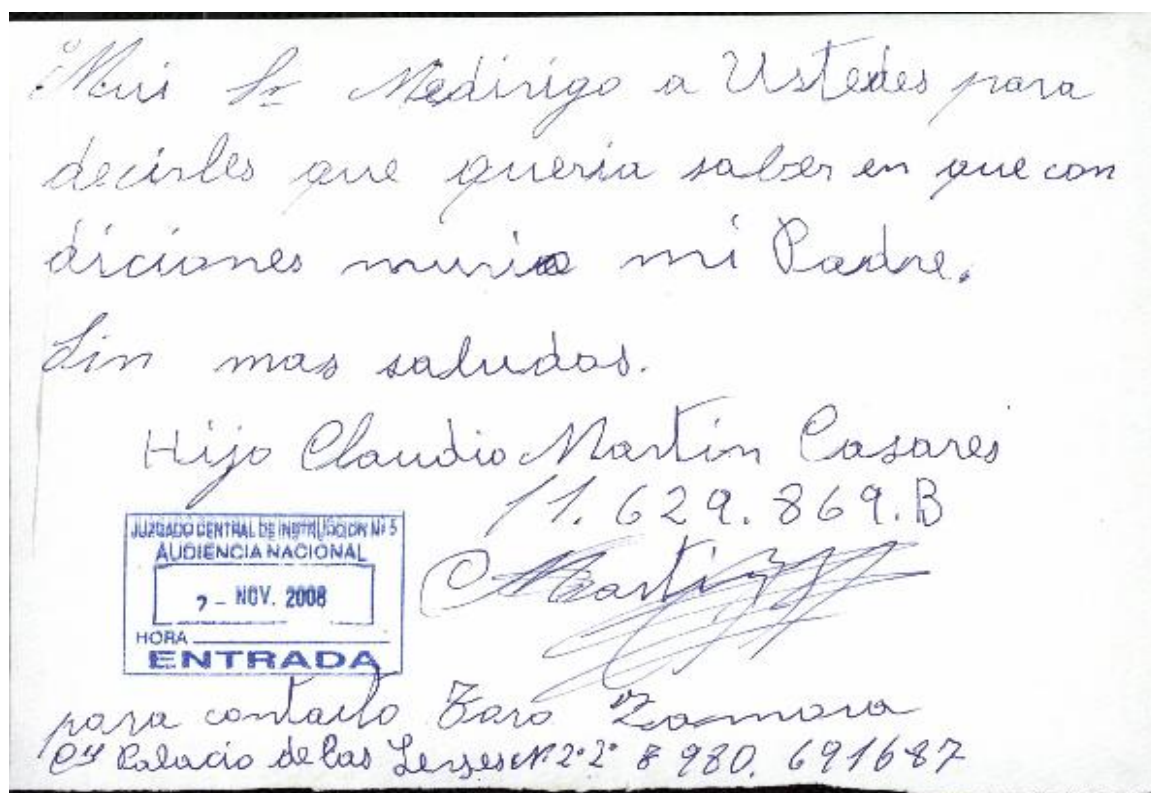 Mui Sr Medirigo a Ustedes para
decirles que queria saber en que con
diciones murio mi Padre.
Sin mas saludos.
Hijo Claudio Martín Casares
11.629.869.B
JUZGADO CENTRAL DE INSTRUCCION Nº 5
AUDIENCIA NACIONAL
NOV. 2008
HORA
ENTRADA
C Martin
para contacto Toro Zamora
Palacio de las Leyes Nº 2º 2º 980. 691687